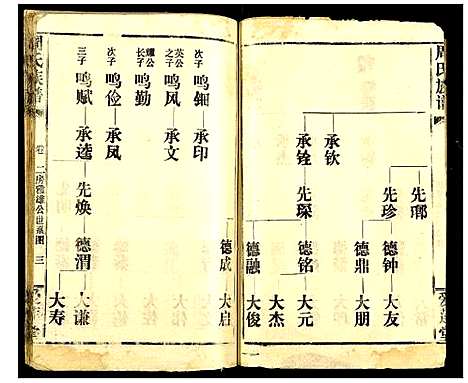 周氏族谱
先𬍛
先珍
德钟
大友
德鼎
大朋
承钦
承铨
先琛
德铭
大元
大杰
德融
大俊
德成
大启
爱莲堂
次子
鸣钿
承印
英公之子
鸣风
承文
耀公长子
鸣勤
次子
鸣俭
承凤
三子
鸣赋
承逵
先焕
德渭
大谦
大寿
周氏族谱
卷
二房雅雄公世系图
三
爱莲堂